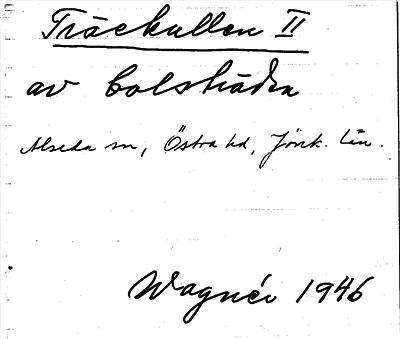 Träckullen II
av Colstråden
Alseda sn, Östra hd, Jönk. län.
Wagnér 1946